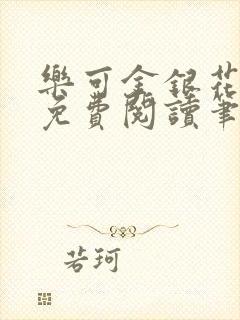 樂可金銀花
免費閱讀筆
若珂